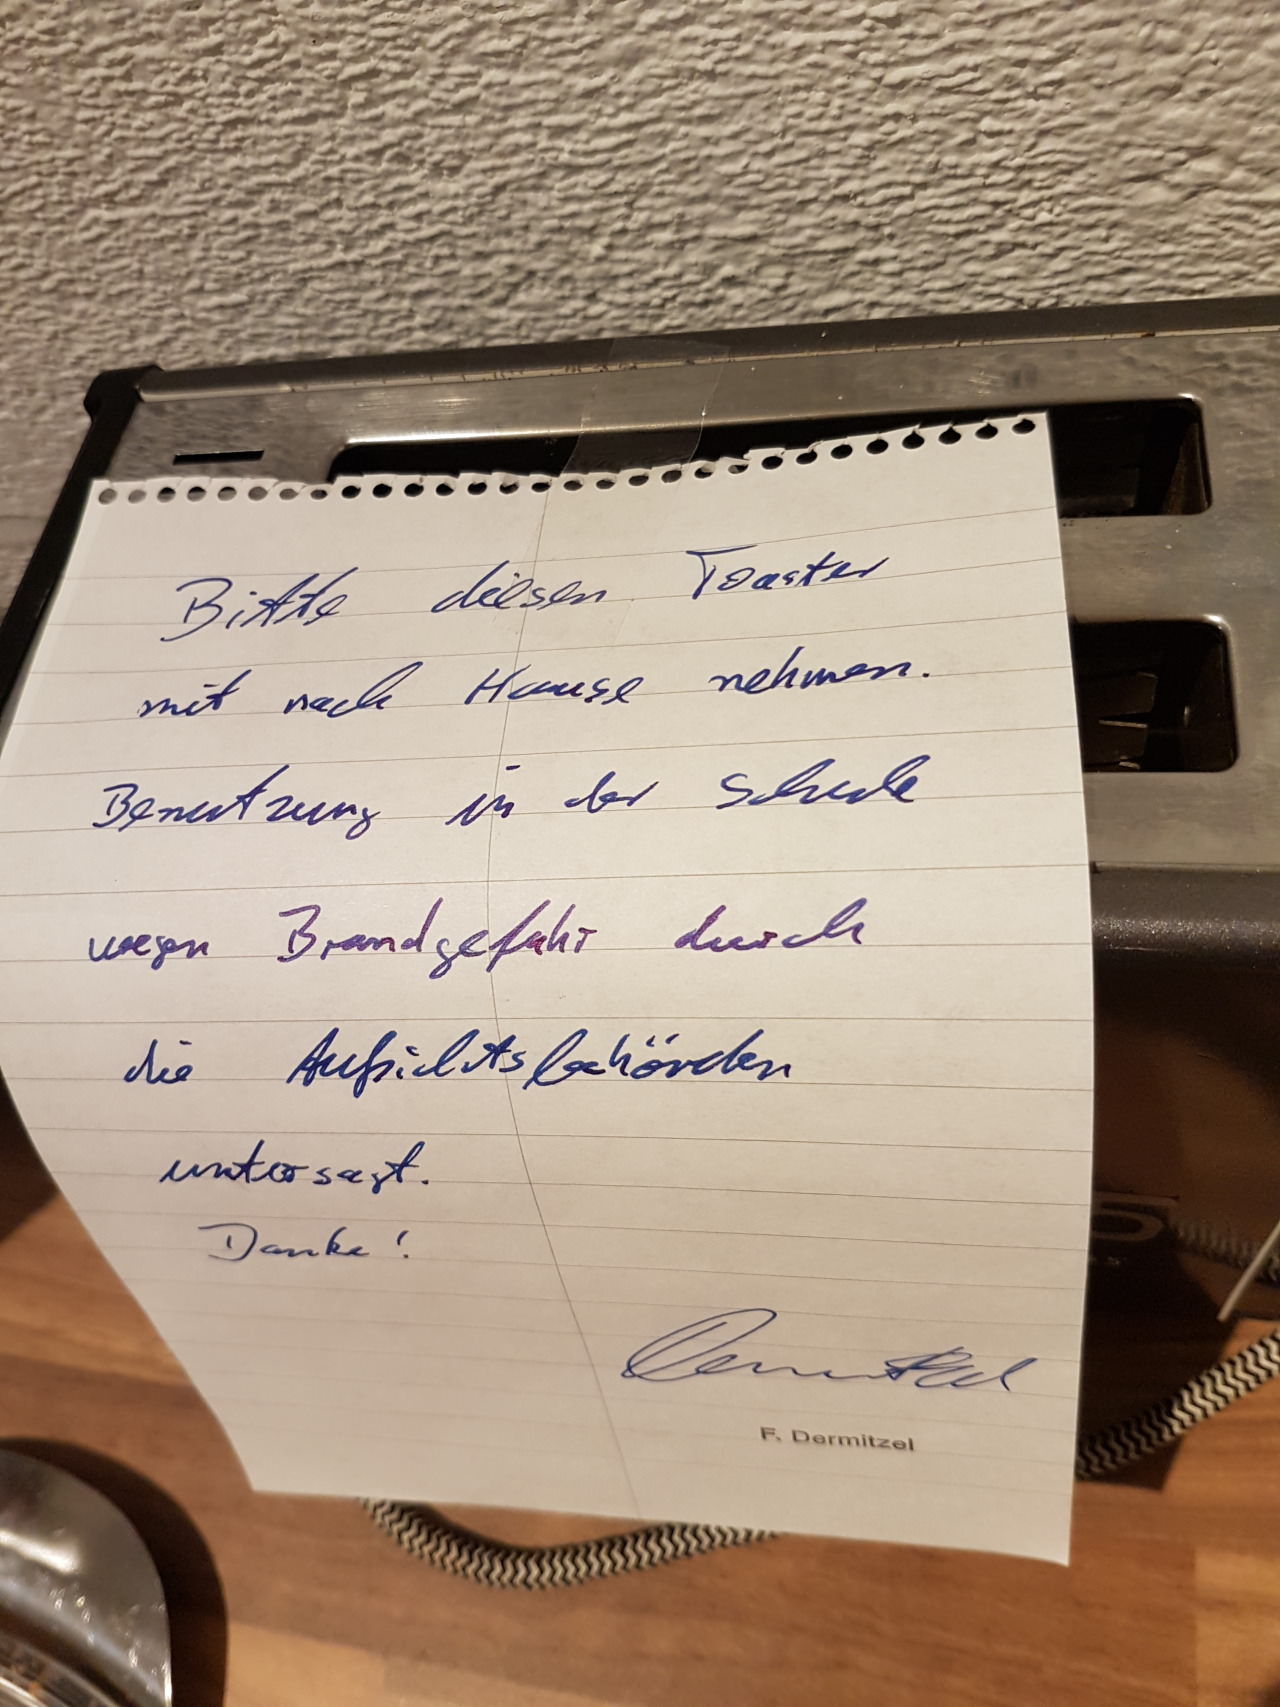 Bitte diesen Toaster
mit nach Hause nehmen.
Benutzung in der Schule
wegen Brandgefahr durch
die Aufsichtsbehörden
untersagt.
Danke!
Dermitzel
F. Dermitzel